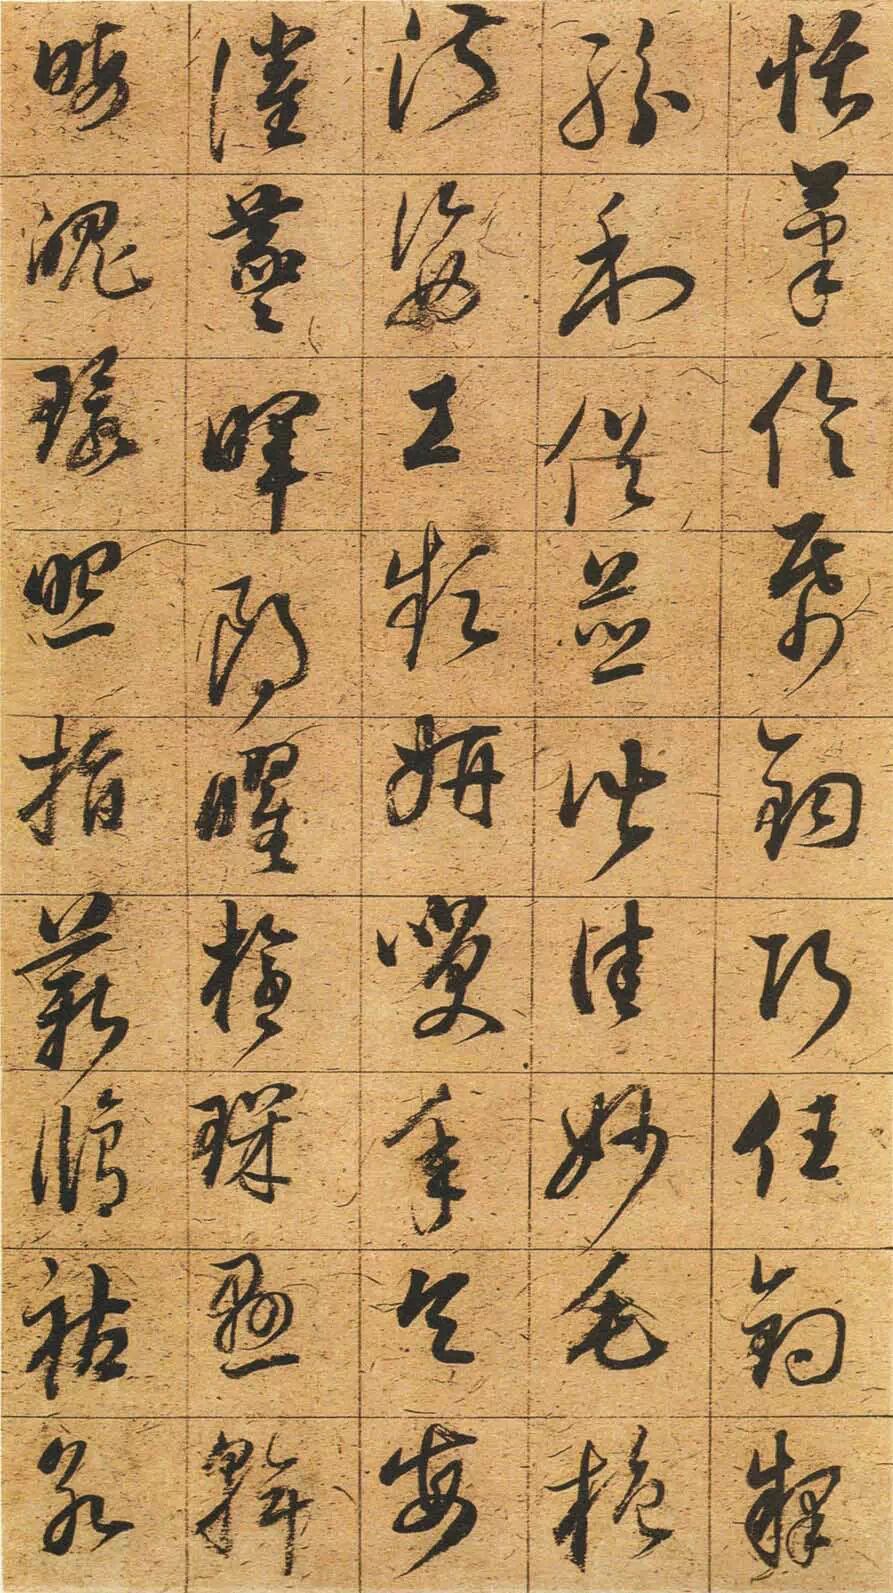 恬筆倫帋鈞巧任釣釋
紛利俗並皆佳妙毛施
淑姿工頻妍笑年矢每
催羲暉朗曜旋璣懸斡
晦魄環照指薪脩祜永